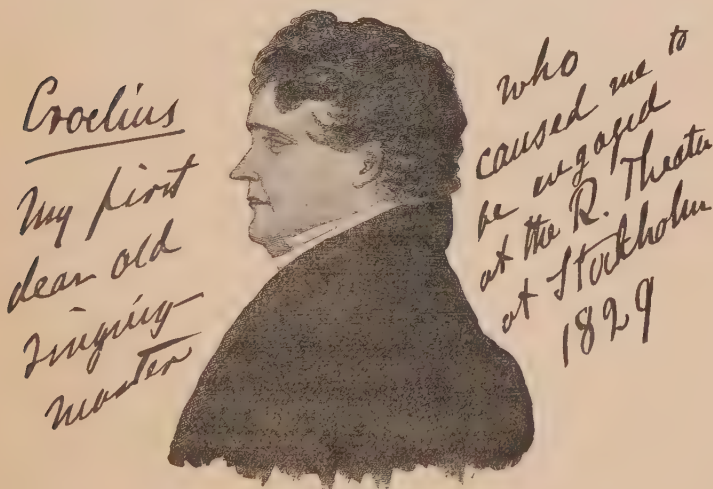 Croelius
My first
dear old
singing-
master
who
caused me to
be engaged
at the R. Theatre
at Stockholm
1829